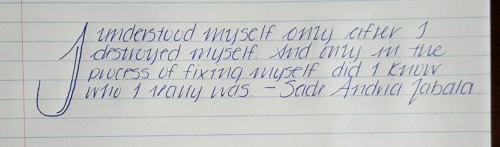 I understood myself only after I
destroyed myself. And only in the
process of fixing myself did I know
who I really was. - Sade Andria Zabala.